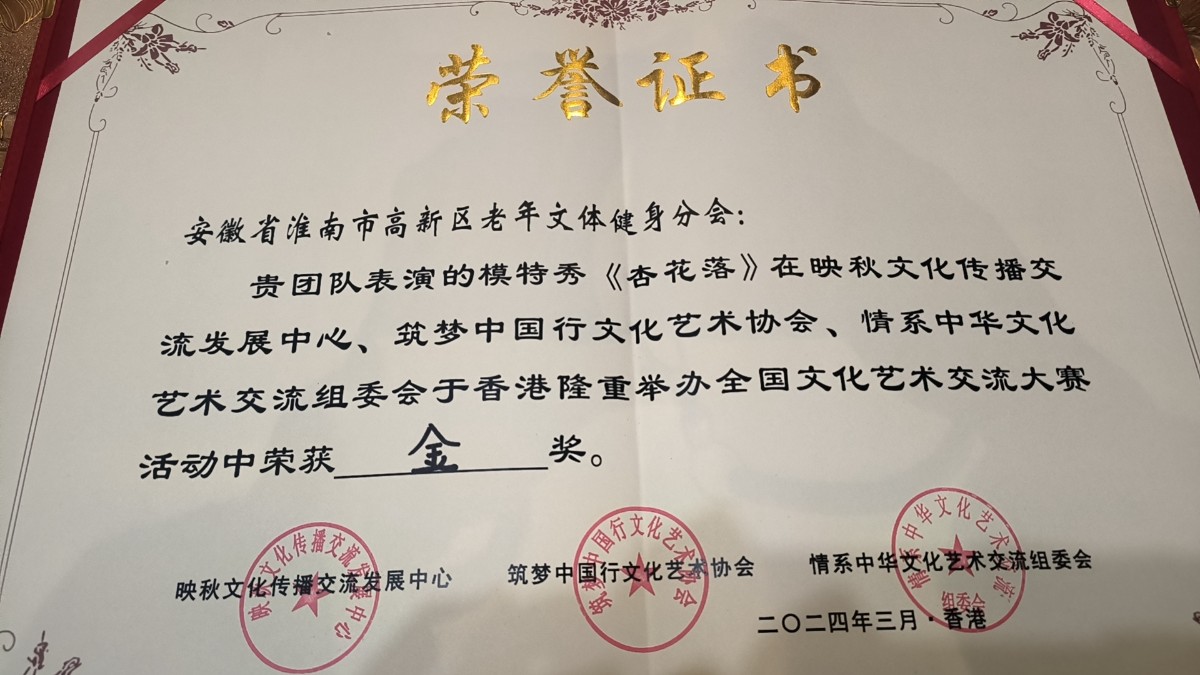 荣誉证书
安徽省淮南市高新区老年文体健身分会：
贵团队表演的模特秀《杏花落》在映秋文化传播交
流发展中心、筑梦中国行文化艺术协会、情系中华文化
艺术交流组委会于香港隆重举办全国文化艺术交流大赛
活动中荣获 金 奖。
映秋文化传播交流发展中心
筑梦中国行文化艺术协会
情系中华文化艺术交流组委会
映秋文化传播交流发展中心
筑梦中国行文化艺术协会
情系中华文化艺术交流
组委会
二〇二四年三月·香港